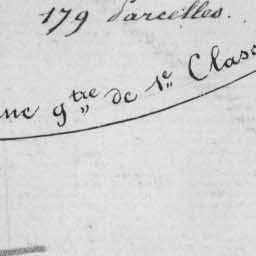 179 Parcelles.
une 9tre de 1e Classe